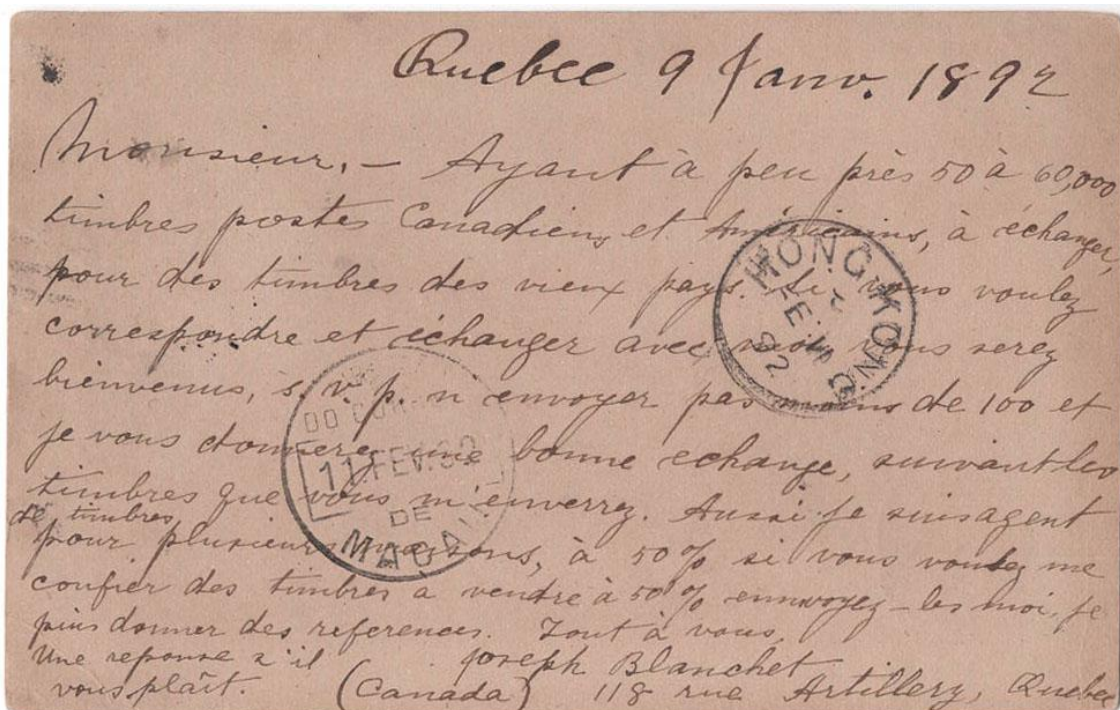 Quebec 9 Janv. 1892
Monsieur, - Ayant à peu près 50 à 60,000
timbres postes Canadiens et Américains, à échanger,
pour des timbres des vieux pays. Si vous voulez
correspondre et échanger avec moi vous serez
bienvenus, s. v. p. n envoyer pas moins de 100 et
je vous donnerez une bonne echange, suivant les
timbres que vous m'enverrez. Aussi je suis agent
de timbres
pour plusieurs maisons, à 50% si vous voulez me
confier des timbres a vendre à 50% ennvoyez-les moi, je
puis donner des references. Tout à vous,
Une reponse s'il
vous plaît.
Joseph Blanchet
(Canada) 118 rue Artillery, Quebec
HONG KONG
FE
92
DO
11.FEV.92
DE
MACAU